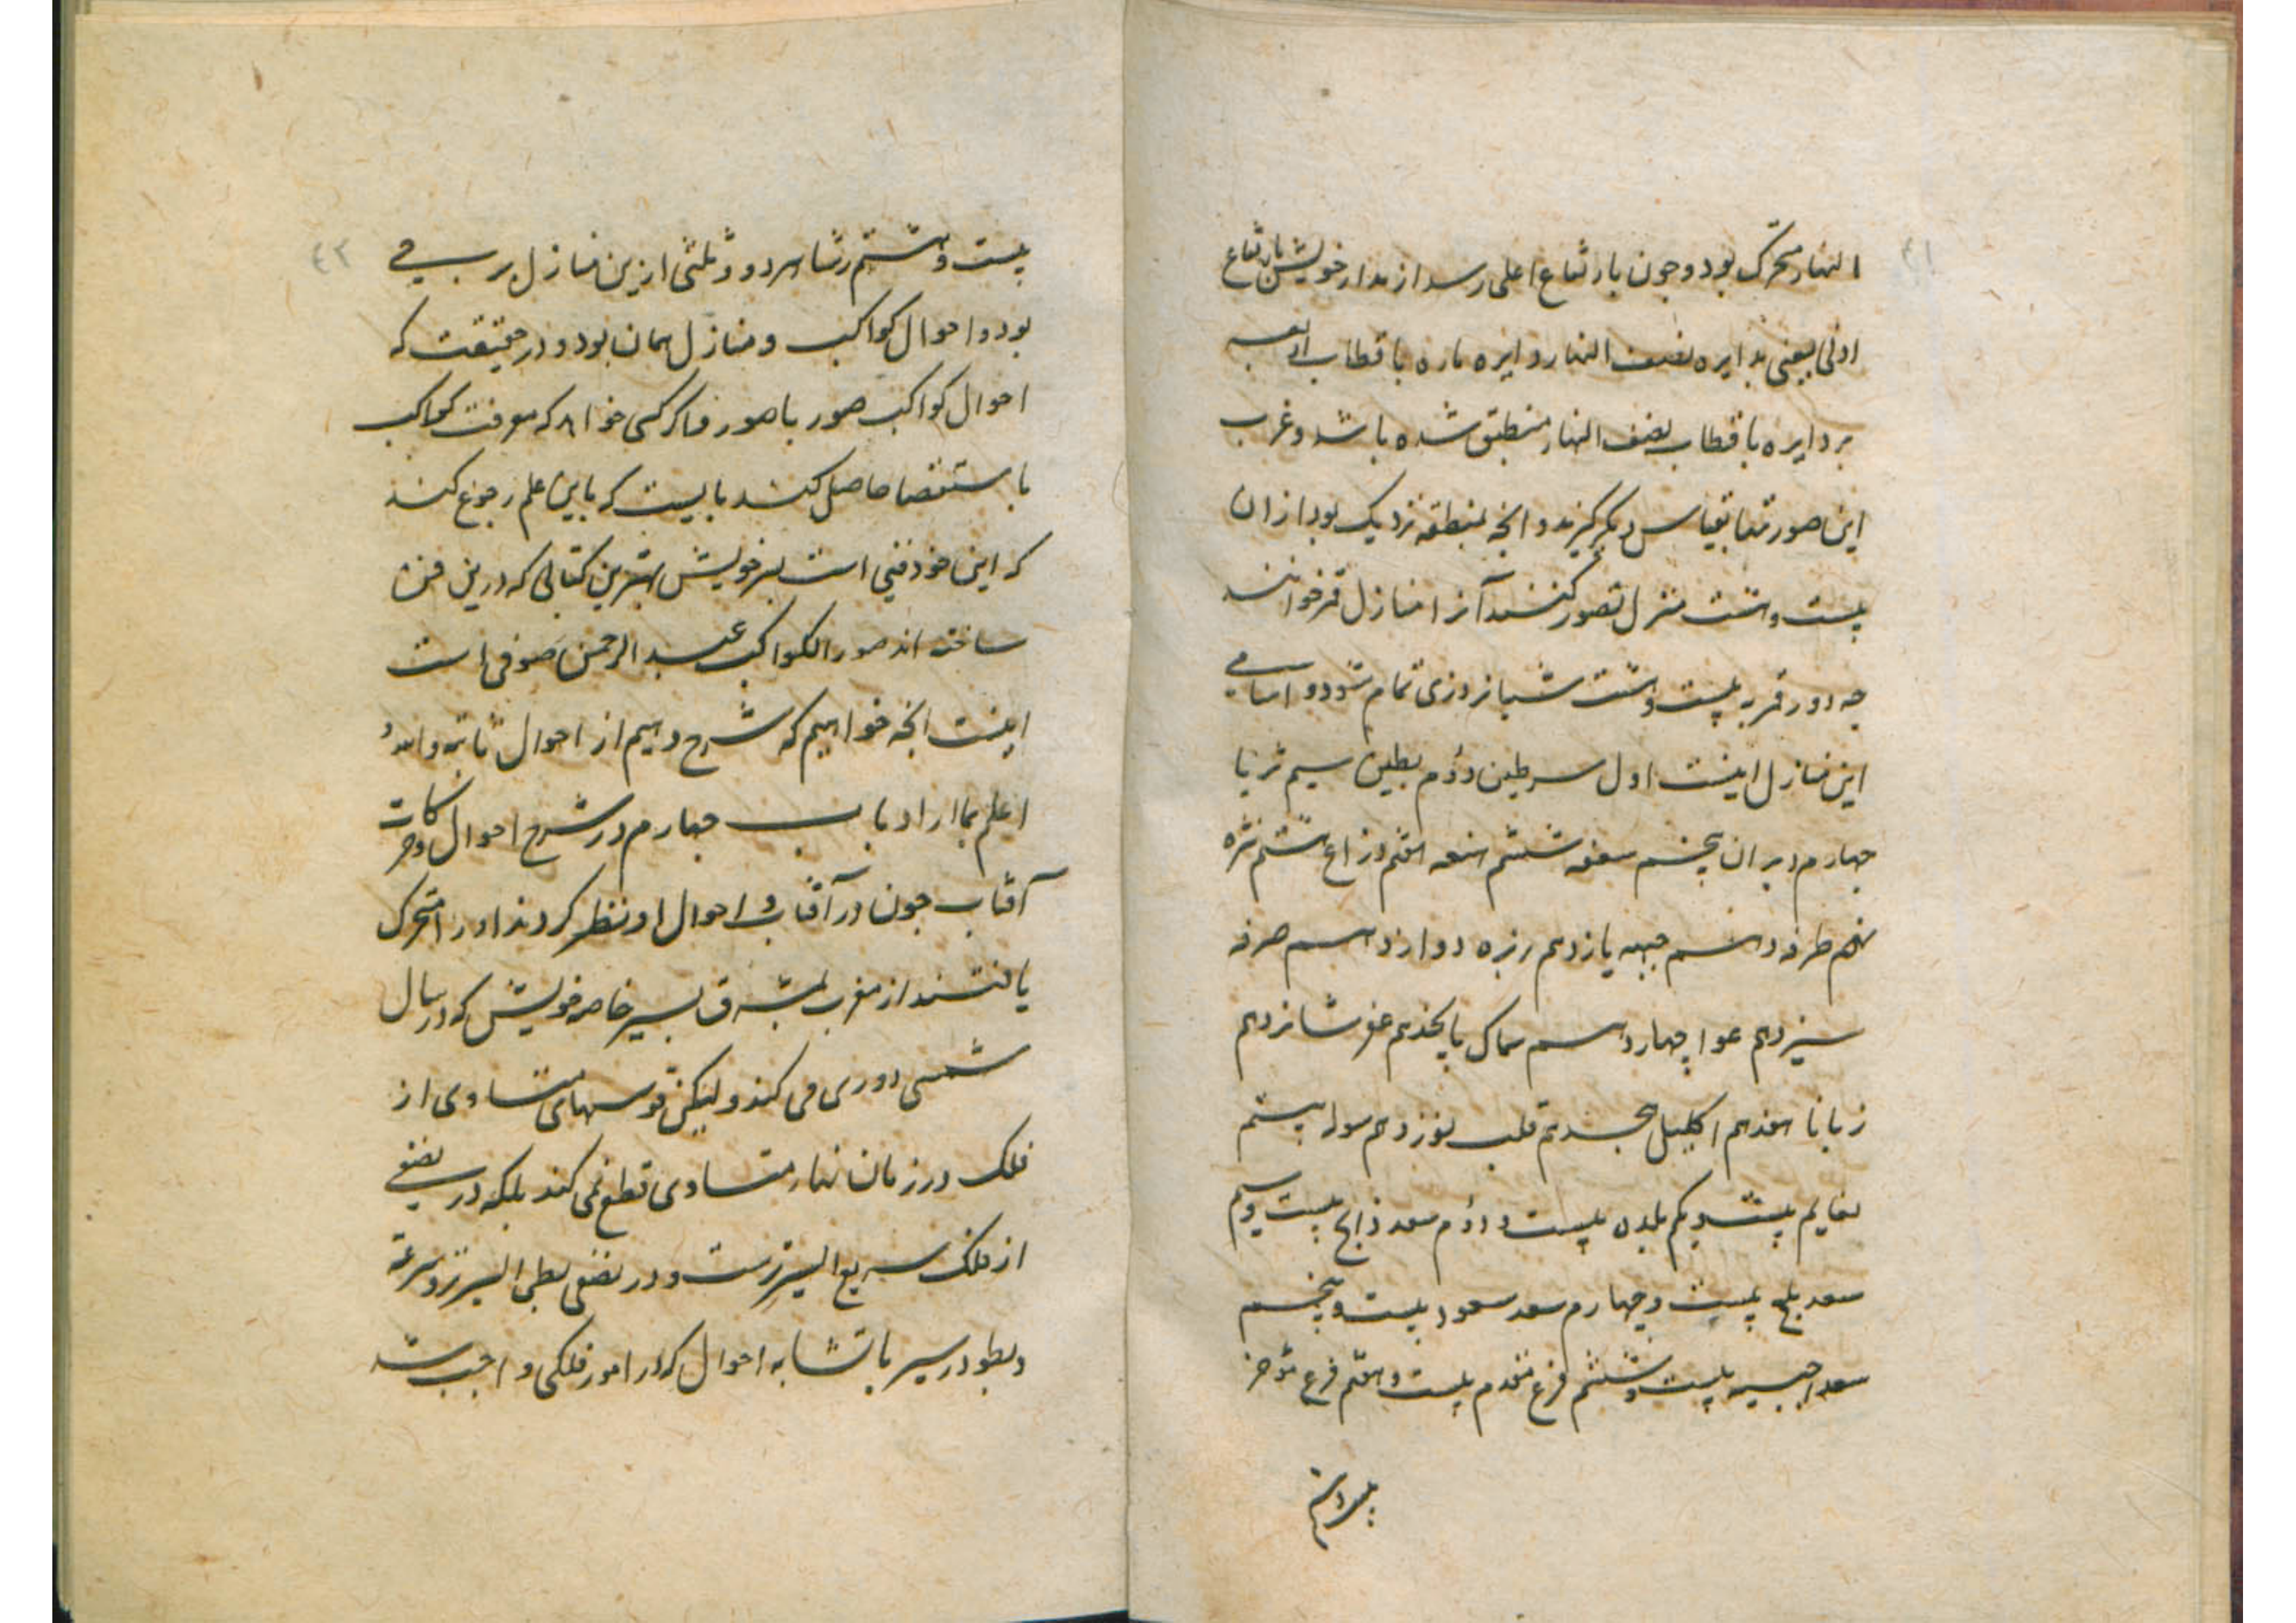 النهار متحرک بود و جون بارتفاع اعلی رسد از مدار خویش بارتفاع
اولی یعنی بدایره نصف النهار دایره ماره باقطاب اربعه
بر دایره باقطاب نصف النهار منطبق شده باشد و غرب
این صورتها بقیاس دیگر گیرند و انجه بمنطقه نزدیک بود از ان
بیست و هشت منزل تصور کنند آنرا منازل قمر خوانند
جه دور قمر به بیست و هشت شبانروزی تمام شود و اسامی
این منازل اینست اول سرطین دوم بطین سیم ثریا
جهارم دبران پنجم هقعه ششم هنعه هفتم ذراع هشتم نثره
نهم طرفه دهم جبهه یازدهم زبره دوازدهم صرفه
سیزدهم عوا چهاردهم سماک پانجدهم غفر شانزدهم
زبانا هفدهم اکلیل هجدهم قلب نوزدهم شوله بیستم
نعایم بیست و یکم بلده بیست و دوم سعد ذابح بیست و سیم
سعد بلع بیست و چهارم سعد سعود بیست و پنجم
سعد اخبیه بیست و ششم فرغ مقدم بیست و هفتم فرغ مؤخر
بیست و هشتم
۴۲
بیست و هشتم رشا هر دو و ثلثی ازین منازل بر برجی
بود و احوال کواکب و منازل همان بود و در حقیقت که
احوال کواکب صور با صور خواهد که معرفت کواکب
باستقصا حاصل کنند بایست که باین علم رجوع کند
که این خود فنی است بسر خویش بهترین کتابی که درین فن
ساخته اند صور الکواکب عبد الرحمن صوفی است
اینست انجه خواهیم که شرح دهیم از احوال ثابته والله
اعلم بما اراد باب جهارم در شرح احوال و حرکات
آفتاب جون در آفتاب و احوال او نظر کردند او را متحرک
یافتند از مغرب بمشرق بسیر خاصه خویش که در سال
شمسی دوری می کند ولیکن قوسهای متساوی از
فلک در زمان نهار متساوی قطع نمی کند بلکه در نصفی
از فلک سریع السیرترست و در نصفی بطی السیرتر و سرعة
و بطو در سیر با تشابه احوال که در امور فلکی واجب شد